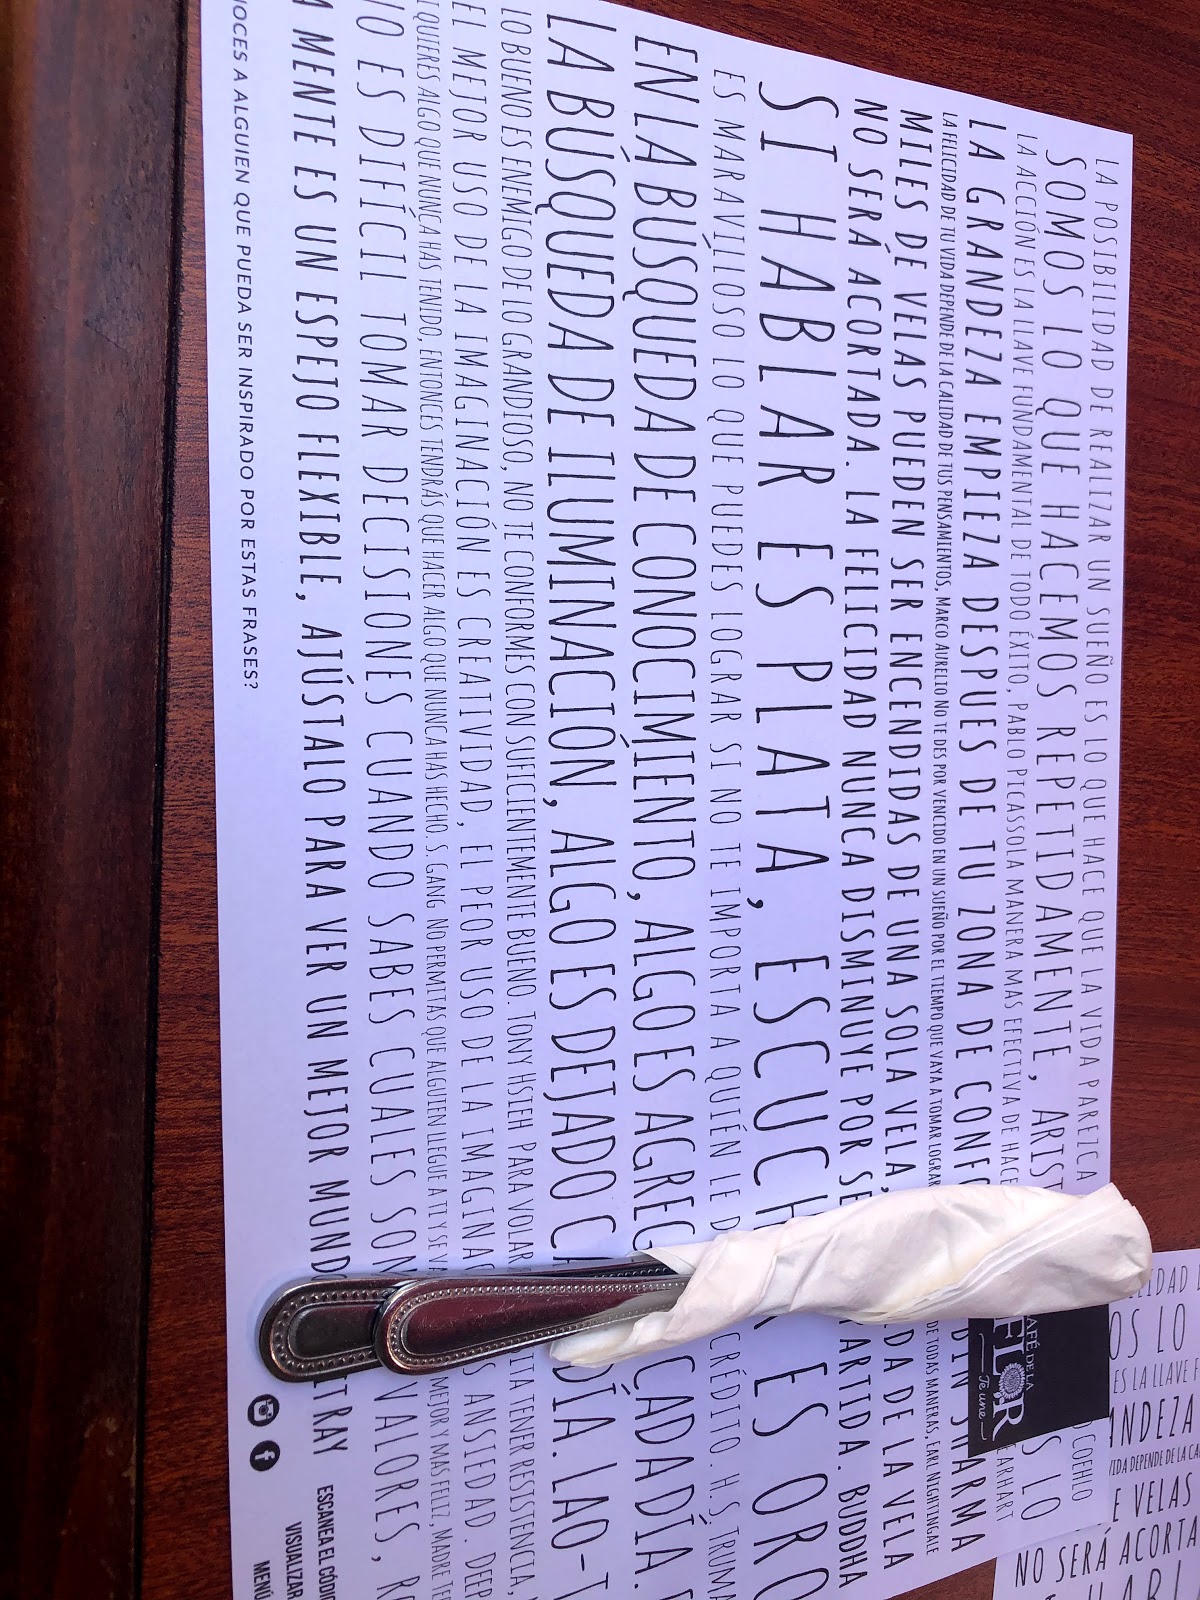 LA POSIBILIDAD DE REALIZAR UN SUEÑO ES LO QUE HACE QUE LA VIDA PAREZCA COEHLO
SOMOS LO QUE HACEMOS REPETIDAMENTE, ARIST S LO
LA ACCIÓN ES LA LLAVE FUNDAMENTAL DE TODO ÉXITO, PABLO PICASSOLA MANERA MAS EFECTIVA DE HACE EARHART
LA GRANDEZA EMPIEZA DESPUES DE TU ZONA DE CONFO BIN SHARMA
LA FELICIDAD DE TU VIDA DEPENDE DE LA CALIDAD DE TUS PENSAMIENTOS, MARCO AURELIO NO TE DES POR VENCIDO EN UN SUEÑO POR EL TIEMPO QUE VAYA A TOMAR LOGRAR DE TODAS MANERAS, EARL NIGHTINGALE
MILES DE VELAS PUEDEN SER ENCENDIDAS DE UNA SOLA VELA, DA DE LA VELA
NO SERÁ ACORTADA. LA FELICIDAD NUNCA DISMINUYE POR SE ARTIDA. BUDDHA
SI HABLAR ES PLATA, ESCUCH R ES ORO
ES MARAVILLOSO LO QUE PUEDES LOGRAR SI NO TE IMPORTA A QUIÉN LE D CRÉDITO. H.S. TRUMA
EN LA BÚSQUEDA DE CONOCIMIENTO, ALGO ES AGREG CADA DÍA.
LA BÚSQUEDA DE ILUMINACIÓN, ALGO ES DEJADO CA DÍA. LAO-T
LO BUENO ES ENEMIGO DE LO GRANDIOSO, NO TE CONFORMES CON SUFICIENTEMENTE BUENO. TONY HSIEH PARA VOLAR ITA TENER RESISTENCIA,
EL MEJOR USO DE LA IMAGINACIÓN ES CREATIVIDAD, EL PEOR USO DE LA IMAGINAC S ANSIEDAD. DEEP
QUIERES ALGO QUE NUNCA HAS TENIDO, ENTONCES TENDRÁS QUE HACER ALGO QUE NUNCA HAS HECHO. S. GANG NO PERMITAS QUE ALGUIEN LLEGUE A TI Y SE VA MEJOR Y MAS FELIZ, MADRE TE
NO ES DIFÍCIL TOMAR DECISIONES CUANDO SABES CUALES SON VALORES, R
A MENTE ES UN ESPEJO FLEXIBLE, AJÚSTALO PARA VER UN MEJOR MUNDO IT RAY
NOCES A ALGUIEN QUE PUEDA SER INSPIRADO POR ESTAS FRASES?
ESCANEA EL CÓDI
VISUALIZAR
MENÚ
CAFÉ DE LA
FLOR
Te une
OS LO
ES LA LLAVE F
ANDEZA
VIDA DEPENDE DE LA CA
E VELAS
NO SERÁ ACORTA
HABL